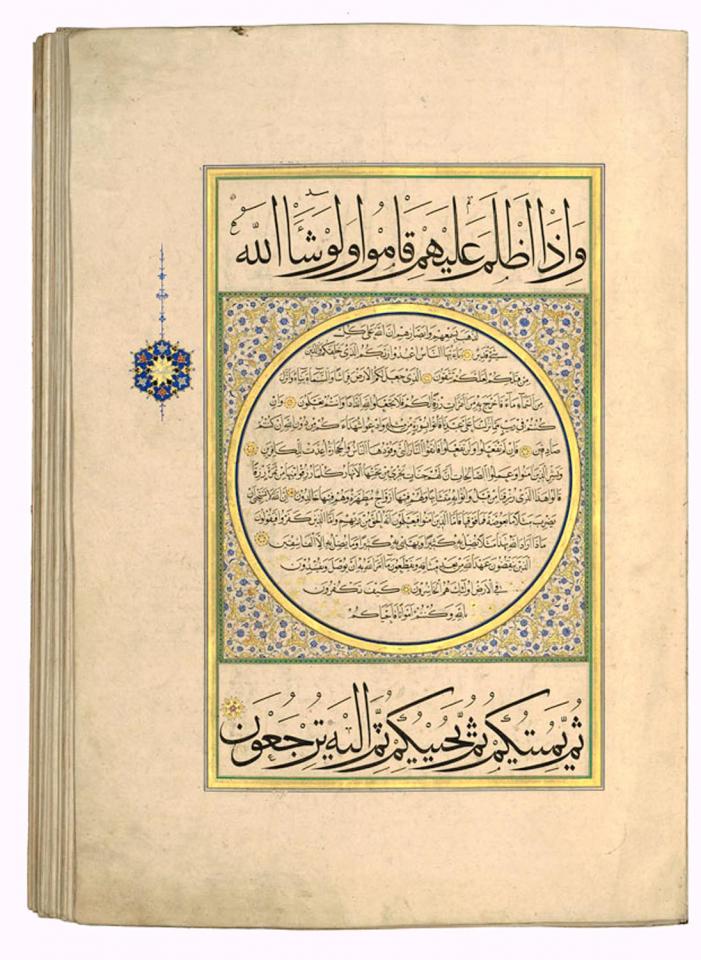 وَاِذَا اَظْلَمَ عَلَيْهِمْ قَامُوا وَلَوْ شَاءَ اللّٰهُ
لذهب بسمعهم وابصارهم ان الله على كل
شيء قدير ياايها الناس اعبدوا ربكم الذي خلقكم والذين
من قبلكم لعلكم تتقون الذي جعل لكم الارض فراشا والسماء بناء وانزل
من السماء ماء فاخرج به من الثمرات رزقا لكم فلا تجعلوا لله اندادا وانتم تعلمون وان
كنتم في ريب مما نزلنا على عبدنا فاتوا بسورة من مثله وادعوا شهداءكم من دون الله ان كنتم
صادقين فان لم تفعلوا ولن تفعلوا فاتقوا النار التي وقودها الناس والحجارة اعدت للكافرين
وبشر الذين امنوا وعملوا الصالحات ان لهم جنات تجري من تحتها الانهار كلما رزقوا منها من ثمرة رزقا
قالوا هذا الذي رزقنا من قبل واتوا به متشابها ولهم فيها ازواج مطهرة وهم فيها خالدون ان الله لا يستحيي ان
يضرب مثلا ما بعوضة فما فوقها فاما الذين امنوا فيعلمون انه الحق من ربهم واما الذين كفروا فيقولون
ماذا اراد الله بهذا مثلا يضل به كثيرا ويهدي به كثيرا وما يضل به الا الفاسقين
الذين ينقضون عهد الله من بعد ميثاقه ويقطعون ما امر الله به ان يوصل ويفسدون
في الارض اولئك هم الخاسرون كيف تكفرون
بالله وكنتم امواتا فاحياكم
ثُمَّ يُمِيتُكُمْ ثُمَّ يُحْيِيكُمْ ثُمَّ اِلَيْهِ تُرْجَعُونَ